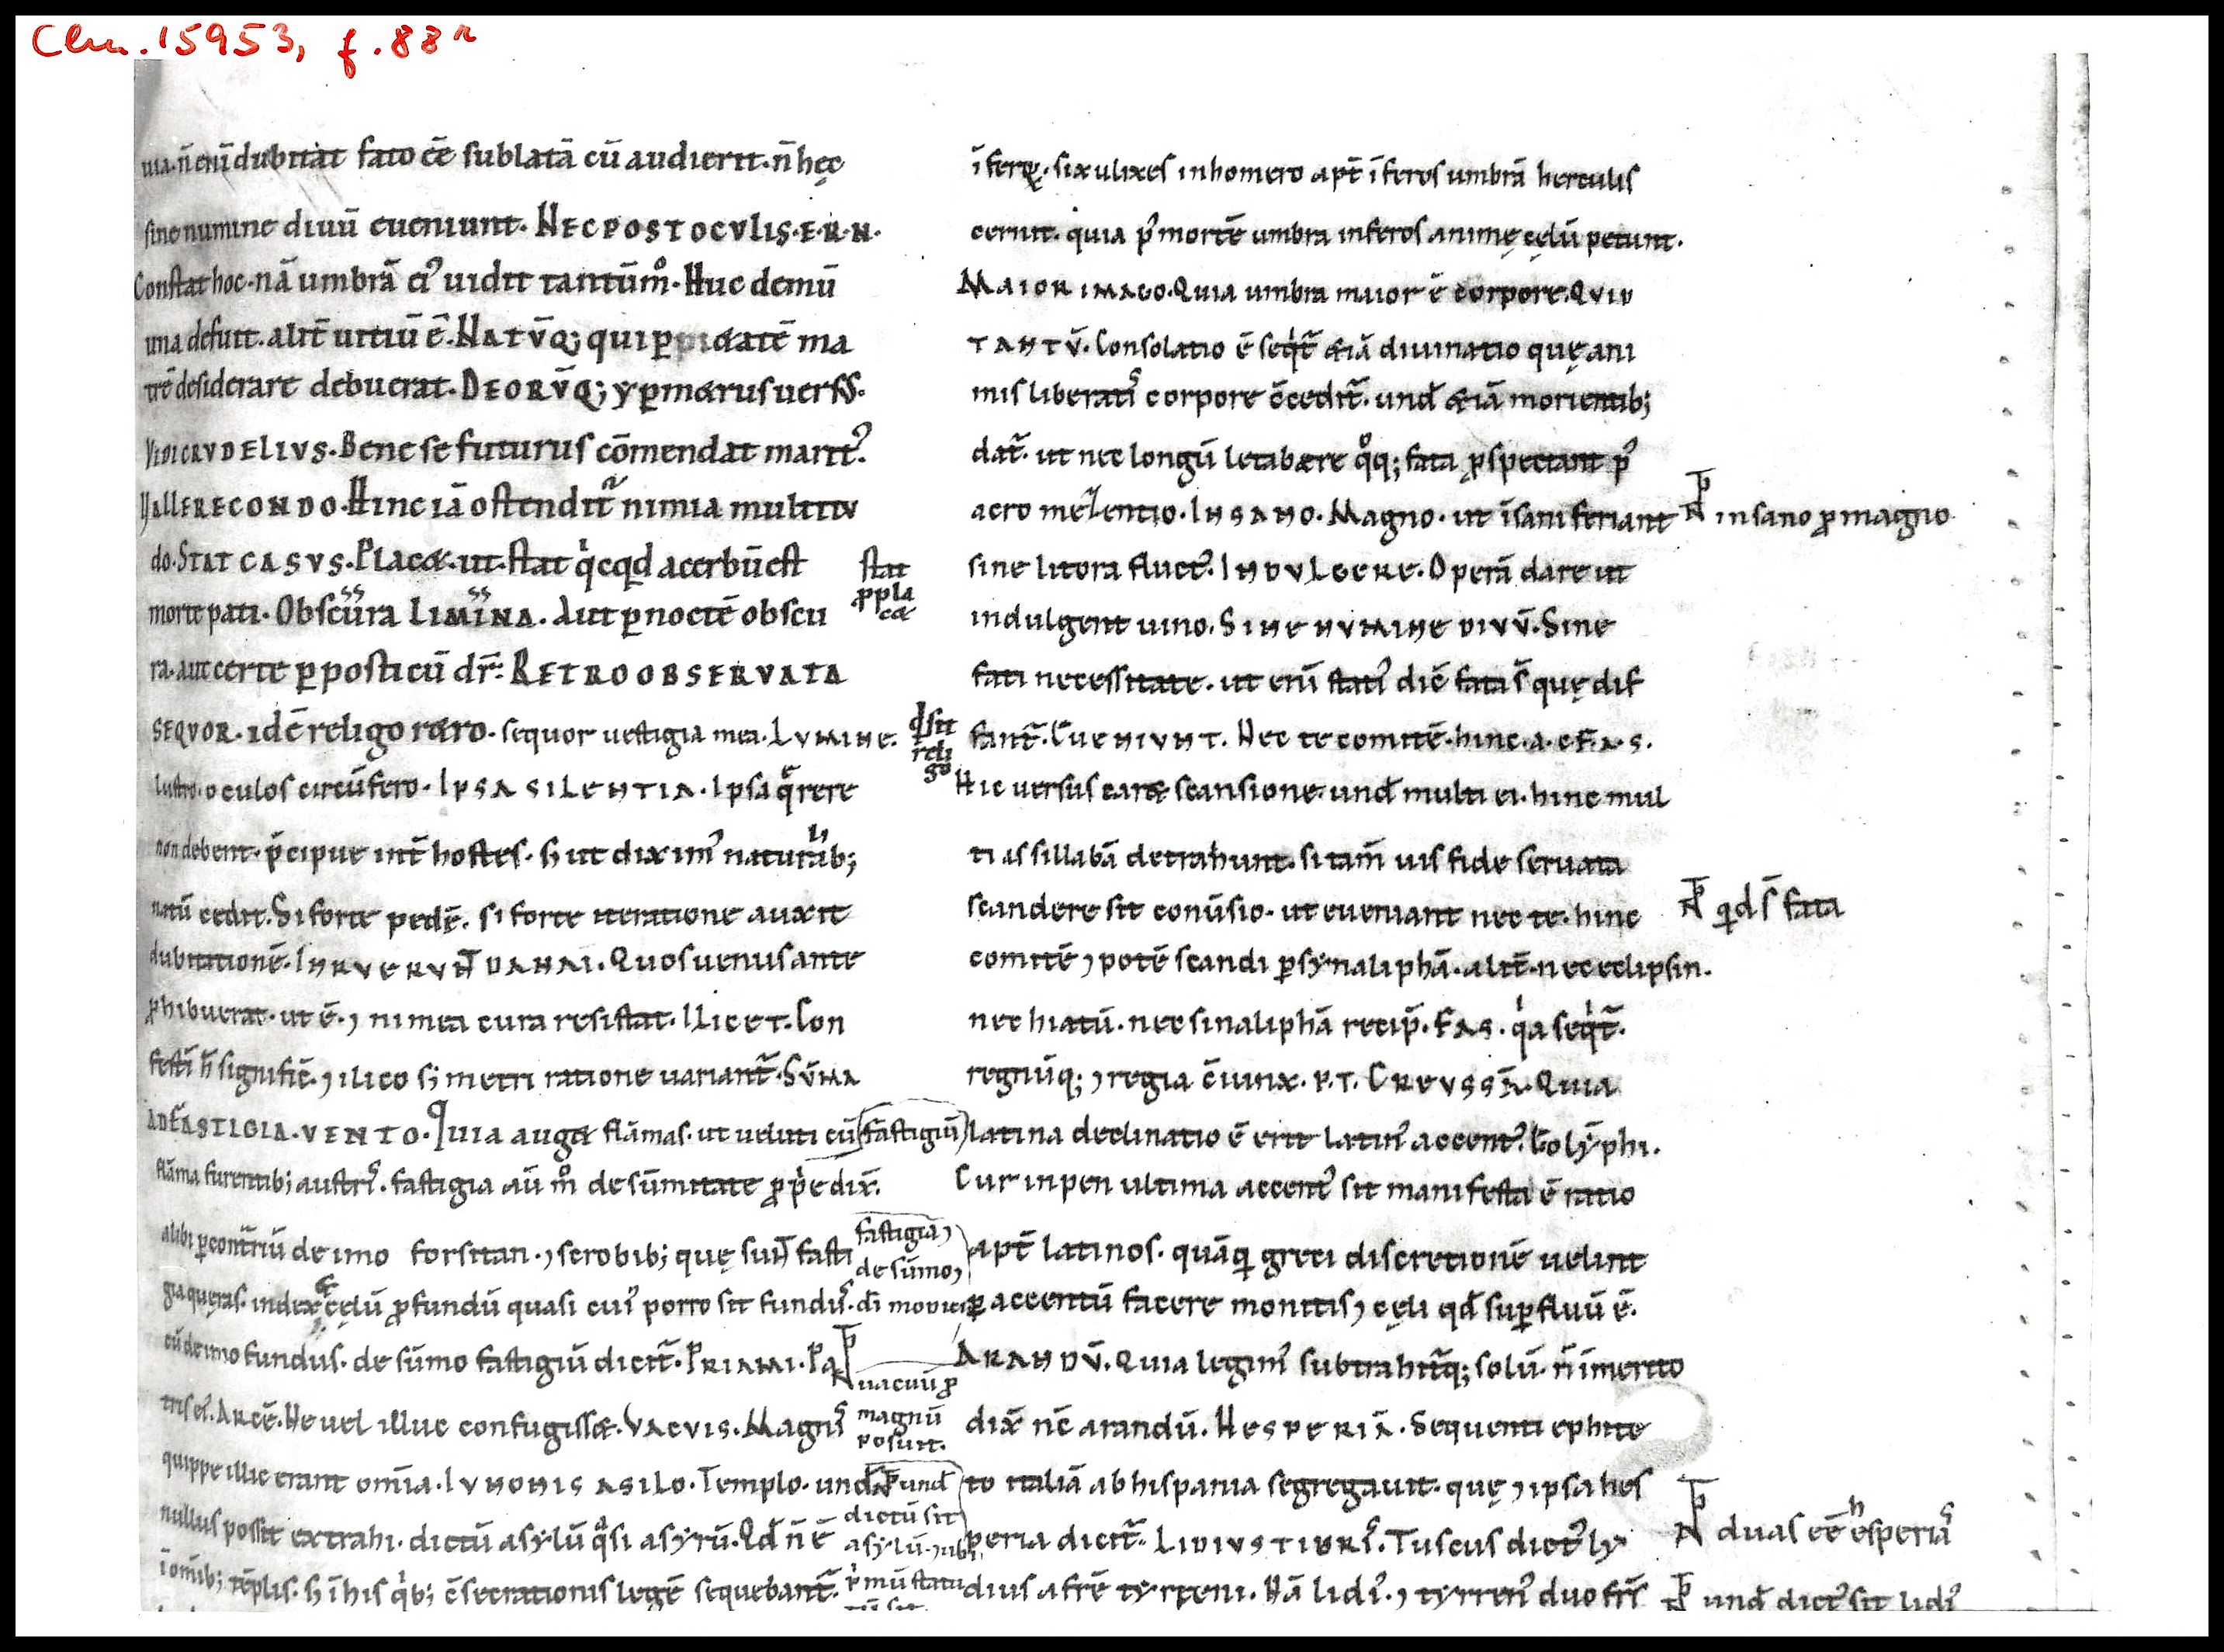 Clm. 15953, f. 88r
uia. n̄ eni̅ dubitat fato ēē sublatā cū audierit. n̄ hęc
sine numine diuū eueniunt. NEC POST OCVLIS. E. R. N.
Constat hoc. nā umbrā ei᾽ uidit tantūm̊. Huc demū
una defuit. alit̄ uitiū ē. NATV̄Q; qui ꝑ &atē ma
trē desiderare debuerat. DEORV̄Q; yꝑm&rus uersꝰ.
VIDI CRVDELIVS. Bene se futurus cōmendat marit᾽.
VALLE RECONDO. Hinc iā ostendit̃ nimia multitu
do. STAT CASVS. Plac&. ut. stat q̇cqd acerbū est
morte pati. Obscura LIMINA. Aut ꝑ noctē obscu
ra. aut certe ꝑ posticū dr̄. RETRO OBSERVATA
SEQVOR. idē religo r&ro. sequor uestigia mea. LVMINE.
lustro. oculos circūfero. IPSA SILENTIA. Ipsa q̃ rere
non debent. p̄cipue int̄ hostes. s; ut dixim᾽ naturalib;
natū cedit. Si forte pedē. si forte iteratione auxit
dubitationē. INRVERVNT DANAI. Quos uenus ante
ꝓhibuerat. ut ē. ⁊ ni mea cura resistat. ILICET. Con
festī h̄ signific̄. ⁊ ilico s; metri ratione uariant̃. SVM̄A
AD FASTIGIA. VENTO. Quia aug& flāmas. ut ueluti cū
flāma furentib; austris. fastigia aū m̊ de sūmitate ꝓp̄e dix̄.
alibi ꝑ contr̄iū de imo forsitan. ⁊ scrobib; quę sunt fasti
gia quęras. inde & cęlū ꝓfundū quasi cui᾽ porro sit fundus.
cū de imo fundus. de sūmo fastigiū dicit̃. PRIAMI. Pa
tris ei᾽. ARCĒ. Ne uel illuc confugiss&. VACVIS. Magnis
quippe illic erant omīa. IVNONIS ASILO. Templo. und̄
nullus possit extrahi. dictū asylū q̊si asyrū. Qd̄ n̄ ē
ī omīb; tēplis. s; ī his q̇b; c̄secrationis legē sequebant̃.
stat
ꝓ pla
c&
qd sit
reli
go
fastigiū
fastigia ⁊
de sūmo ⁊
uacuū ꝓ
magnū
posuit.
und̄
dictū sit
asylū.
īferꝝ. sic ulixes in homero apt̄ īferos umbrā herculis
cernit. quia p᾽ mortē umbra inferos animę cęlū petunt.
MAIOR IMAGO. Quia umbra maior ē corpore. QVID
TANTV̄. Consolatio ē seqt̃ &iā diuinatio quę ani
mis liberatis corpore c̄cedit̃. und̄ &iā morientib;
dat̃. ut nec longū letabere q̊q; fata ꝓspectant p᾽
acro mezentio. INSANO. Magno. ut īsani feriant
sine litora fluct᾽. INDVLGERE. Operā dare ut
indulgent uino. SINE NVMINE DIVV̄. Sine
fati necessitate. ut enī stati᾽ diē fata s̄ quę dii
fant̃. EVENIVNT. Nec te comitē. hinc. a. c. F. A. S.
Hic uersus car& scansione. und̄ multi ei. hinc mul
ti as sillabā detrahunt. si tam̄ uis fide seruata
scandere sit conūsio. ut eueniant nec te. hinc
comitē ⁊ potē scandi ꝑ synaliphā. alit̄ nec eclipsin.
nec hiatū. nec sinaliphā recip̄. FAS. q̇a seqt̃.
regnūq; ⁊ regia c̄iunx. P. T. CREVSSĀ. Quia
latina declinatio ē erit latin᾽ accent᾽. olȳphi.
Cur in penultima accent᾽ sit manifesta ē ratio
apt̄ latinos. quāq̃ greci discretionē uelint
ꝑ accentū facere montis ⁊ cęli qd̄ suꝑfluū ē.
ARANDV̄. Quia legim᾽ subtrahitq; solū. n̄ īmerito
dix̄ nc̄ arandū. HESPERIĀ. Sequenti ephite
to italiā ab hispania segregauit. quę ⁊ ipsa hes
peria dicit̃. LIDIVS TIBRIS. Tuscus dict᾽ ly
dius a fr̄ē tyrreni. Nā lid᾽. ⁊ tyrren᾽ duo fr̄s
insano ꝓ magno
q̇d s̄ fata
duas ēē hesperias
und̄ dict᾽ sit lid᾽